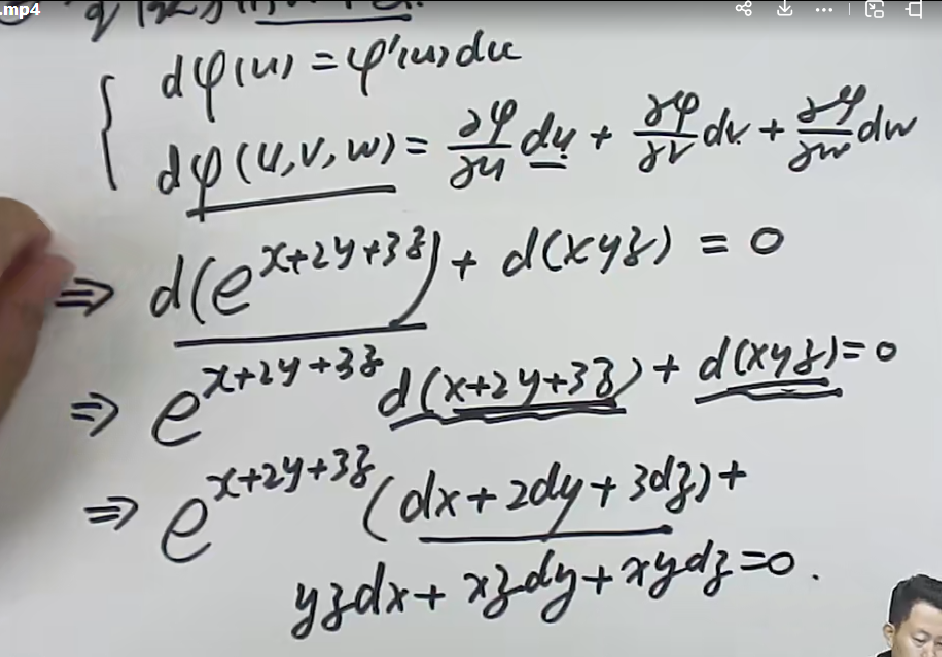 .mp4
dφ(u) = φ'(u)du
dφ(u,v,w) = ∂φ/∂u du + ∂φ/∂v dv + ∂φ/∂w dw
⇒ d(e^{x+2y+3z}) + d(xyz) = 0
⇒ e^{x+2y+3z} d(x+2y+3z) + d(xyz) = 0
⇒ e^{x+2y+3z} (dx+2dy+3dz) +
yzdx + xzdy + xydz = 0.